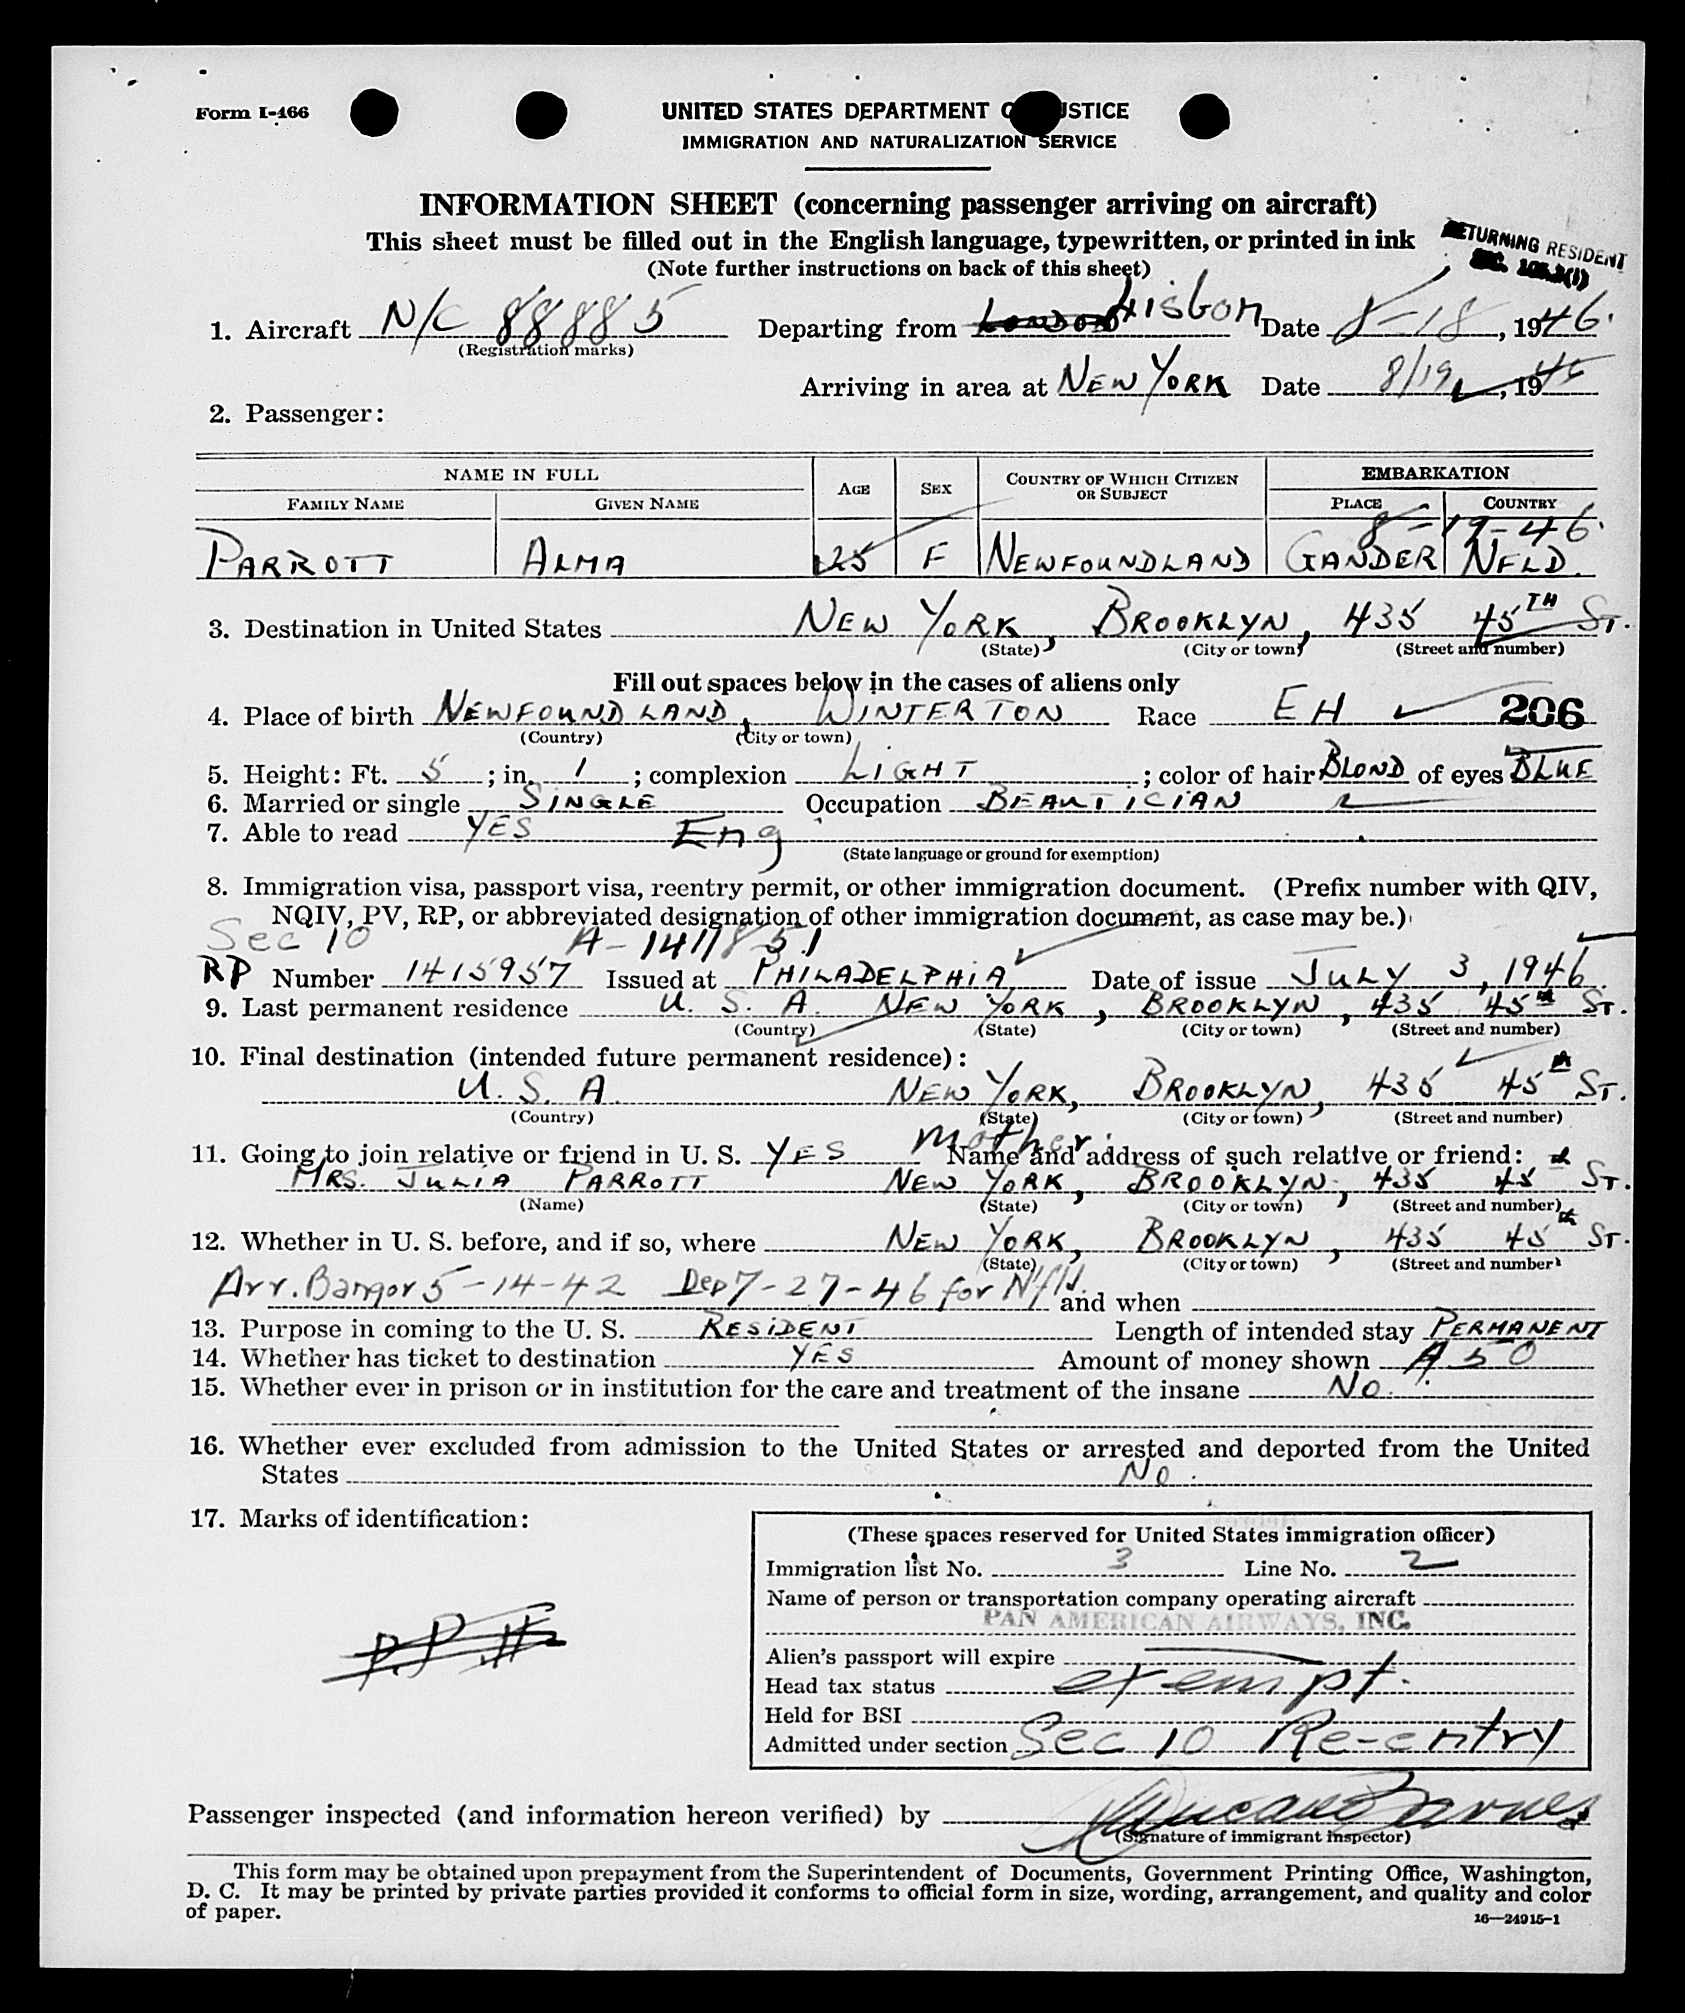 Form I-466
UNITED STATES DEPARTMENT O JUSTICE
IMMIGRATION AND NATURALIZATION SERVICE
INFORMATION SHEET (concerning passenger arriving on aircraft)
This sheet must be filled out in the English language, typewritten, or printed in ink
(Note further instructions on back of this sheet)
RETURNING RESIDENT
1. Aircraft N/C 88885 Departing from London Lisbon Date 8-18, 1946.
(Registration marks)
Arriving in area at NEW YORK Date 8/19, 1946
2. Passenger:
NAME IN FULL AGE SEX COUNTRY OF WHICH CITIZEN OR SUBJECT EMBARKATION
FAMILY NAME GIVEN NAME PLACE COUNTRY
8-19-46.
PARROTT ALMA 25 F NEWFOUNDLAND GANDER NFLD.
3. Destination in United States NEW YORK, BROOKLYN, 435 45TH ST.
(State) (City or town) (Street and number)
Fill out spaces below in the cases of aliens only
4. Place of birth NEWFOUNDLAND, WINTERTON Race EH 206
(Country) (City or town)
5. Height: Ft. 5; in. 1; complexion LIGHT; color of hair BLOND of eyes BLUE
6. Married or single SINGLE Occupation BEAUTICIAN
7. Able to read YES Eng
(State language or ground for exemption)
8. Immigration visa, passport visa, reentry permit, or other immigration document. (Prefix number with QIV,
NQIV, PV, RP, or abbreviated designation of other immigration document, as case may be.)
Sec 10 A-1411851
RP Number 1415957 Issued at PHILADELPHIA Date of issue JULY 3, 1946.
9. Last permanent residence U. S. A. NEW YORK, BROOKLYN, 435 45th ST.
(Country) (State) (City or town) (Street and number)
10. Final destination (intended future permanent residence):
U. S. A. NEW YORK, BROOKLYN, 435 45th ST.
(Country) (State) (City or town) (Street and number)
11. Going to join relative or friend in U. S. YES Mother. Name and address of such relative or friend:
MRS. JULIA PARROTT NEW YORK, BROOKLYN, 435 45th ST.
(Name) (State) (City or town) (Street and number)
12. Whether in U. S. before, and if so, where NEW YORK, BROOKLYN, 435 45th ST.
(State) (City or town) (Street and number)
Arr. Bangor 5-14-42 Dep 7-27-46 for Nfld. and when
13. Purpose in coming to the U. S. RESIDENT Length of intended stay PERMANENT
14. Whether has ticket to destination YES Amount of money shown 50
15. Whether ever in prison or in institution for the care and treatment of the insane NO.
16. Whether ever excluded from admission to the United States or arrested and deported from the United
States NO.
17. Marks of identification:
(These spaces reserved for United States immigration officer)
Immigration list No. 3 Line No. 2
Name of person or transportation company operating aircraft
PAN AMERICAN AIRWAYS, INC.
Alien's passport will expire
Head tax status exempt.
Held for BSI
Admitted under section Sec 10 Re-entry
Passenger inspected (and information hereon verified) by
(Signature of immigrant inspector)
This form may be obtained upon prepayment from the Superintendent of Documents, Government Printing Office, Washington,
D. C. It may be printed by private parties provided it conforms to official form in size, wording, arrangement, and quality and color
of paper.
16—24915-1